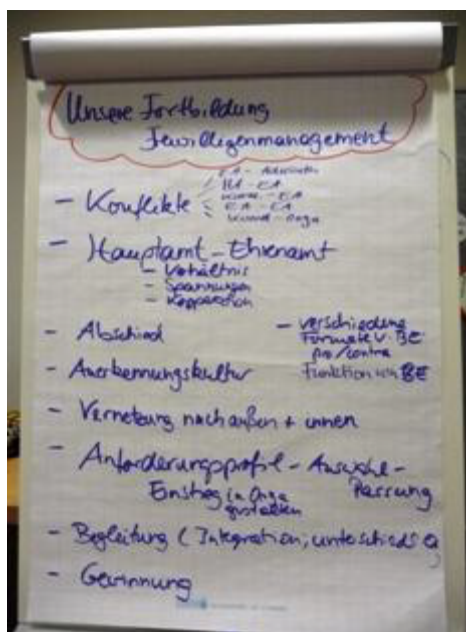 Unsere Fortbildung
Freiwilligenmanagement
- Konflikte
HA - EA
EA - EA
- Hauptamt - Ehrenamt
- Verhältnis
- Spannungen
- Kooperation
- Abschied
- verschiedene
Formate v. BE
pro/contra
Funktion von BE
- Anerkennungskultur
- Vernetzung nach außen + innen
- Anforderungsprofil - Auswahl -
Passung
Einstieg in Orga
gestalten
- Begleitung (Integration, unterschiedl.
- Gewinnung